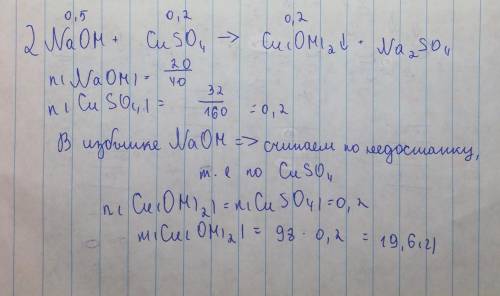 0,5 0,2 0,2
2 NaOH + CuSO4 → Cu(OH)2↓ + Na2SO4
n(NaOH) = 20/40
n(CuSO4) = 32/160 = 0,2
В избытке NaOH => считаем по недостатку,
т.е по CuSO4
n(Cu(OH)2) = n(CuSO4) = 0,2
m(Cu(OH)2) = 98 · 0,2 = 19,6(г)